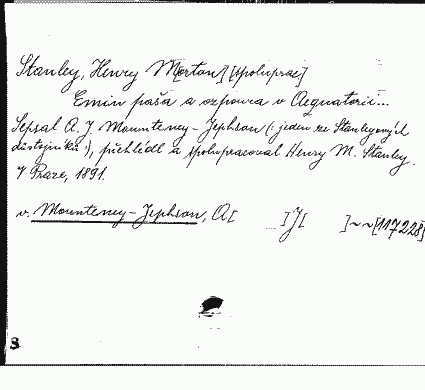 Stanley, Henry M[orton] [spoluprac]
Emin paša a vzpoura v Aequatorii...
Sepsal A. J. Mounteney-Jephson (: jeden ze Stanleyových
důstojníků :), přehlédl a spolupracoval Henry M. Stanley.
V Praze, 1891.
v. Mounteney-Jephson, A[ ]J[ ]~~[117228]
8